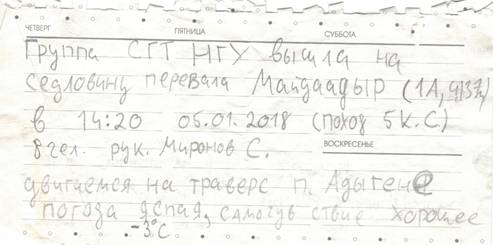 ЧЕТВЕРГ ПЯТНИЦА СУББОТА
Группа СГТ НГУ вышла на
седловину перевала Майдаадыр (1А, 4137)
в 14:20 05.01.2018 (поход 5 К.С)
8 чел. рук. Миронов С.
ВОСКРЕСЕНЬЕ
двигаемся на траверс п. Адыгене
погода ясная, самочувствие хорошее
-3°С